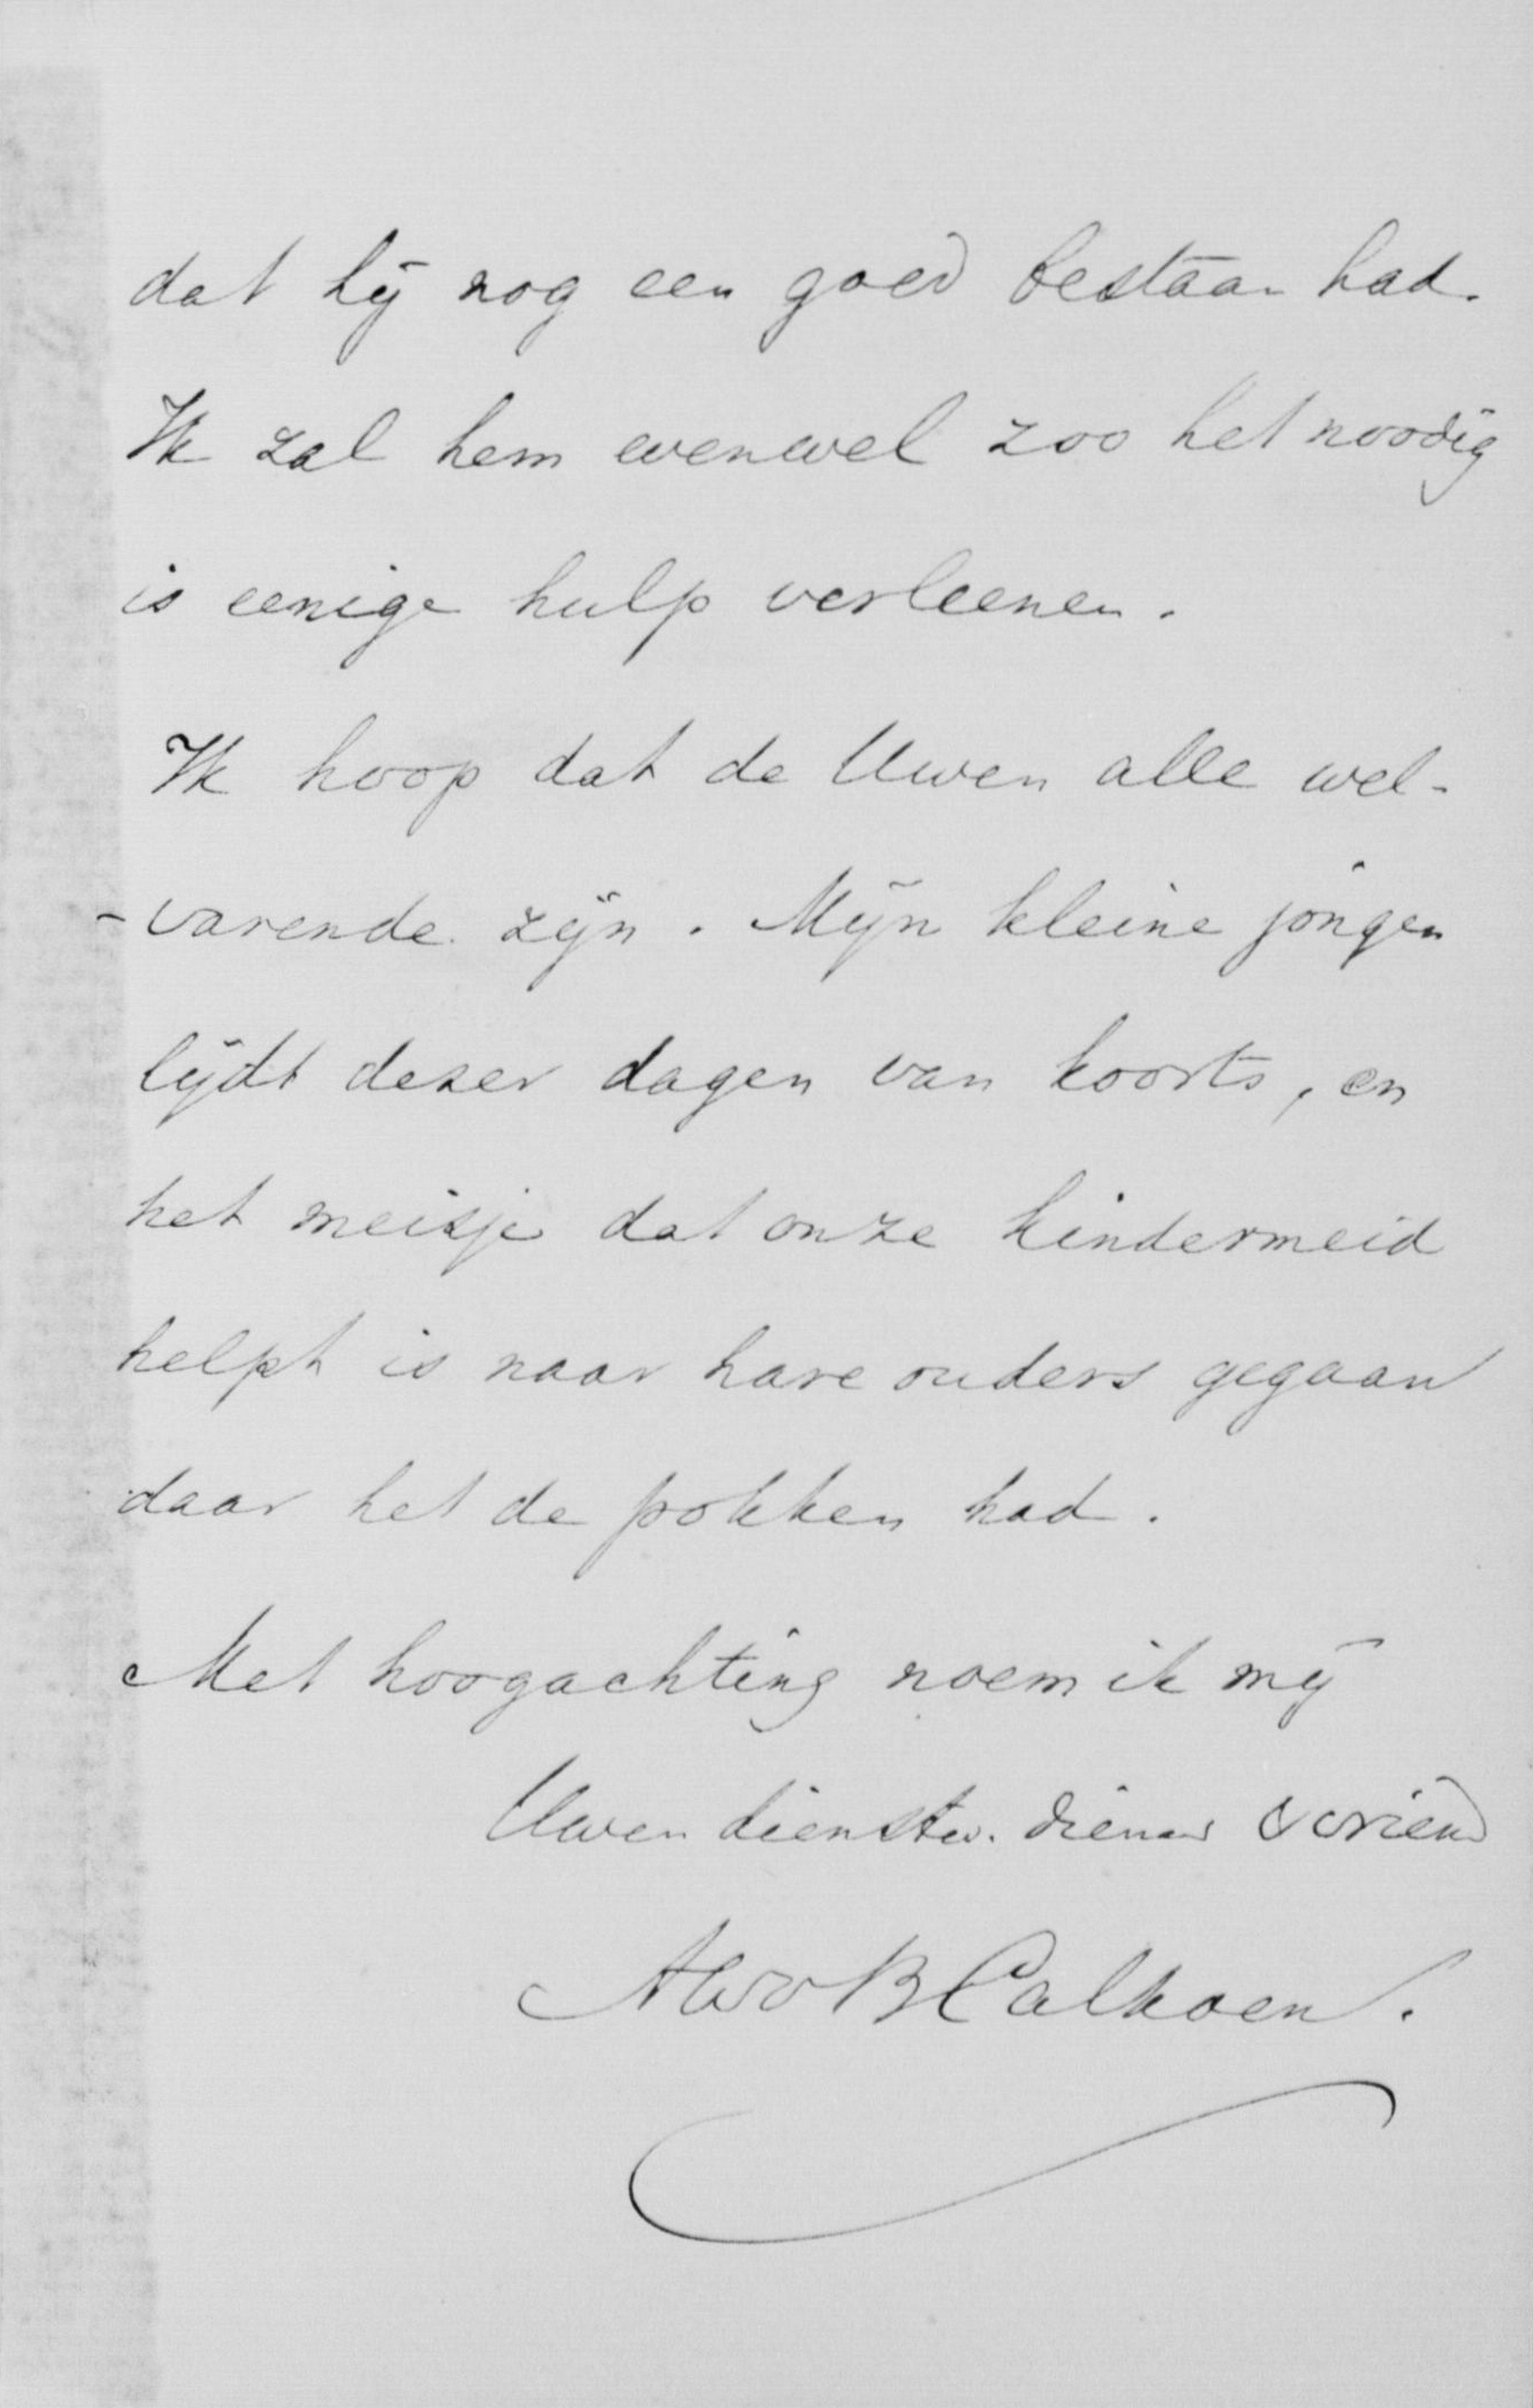 dat hij nog een goed bestaan had.
Ik zal hem evenwel zoo het noodig
is eenige hulp verleenen.
Ik hoop dat de Uwen alle wel-
-varende zijn. Mijn kleine jongen
lijdt dezer dagen van koorts, en
het meisje dat onze kindermeid
helpt is naar hare ouders gegaan
daar het de pokken had.
Met hoogachting noem ik mij
Uwen dienstw. dienaar & vriend
AWvBCalkoen.